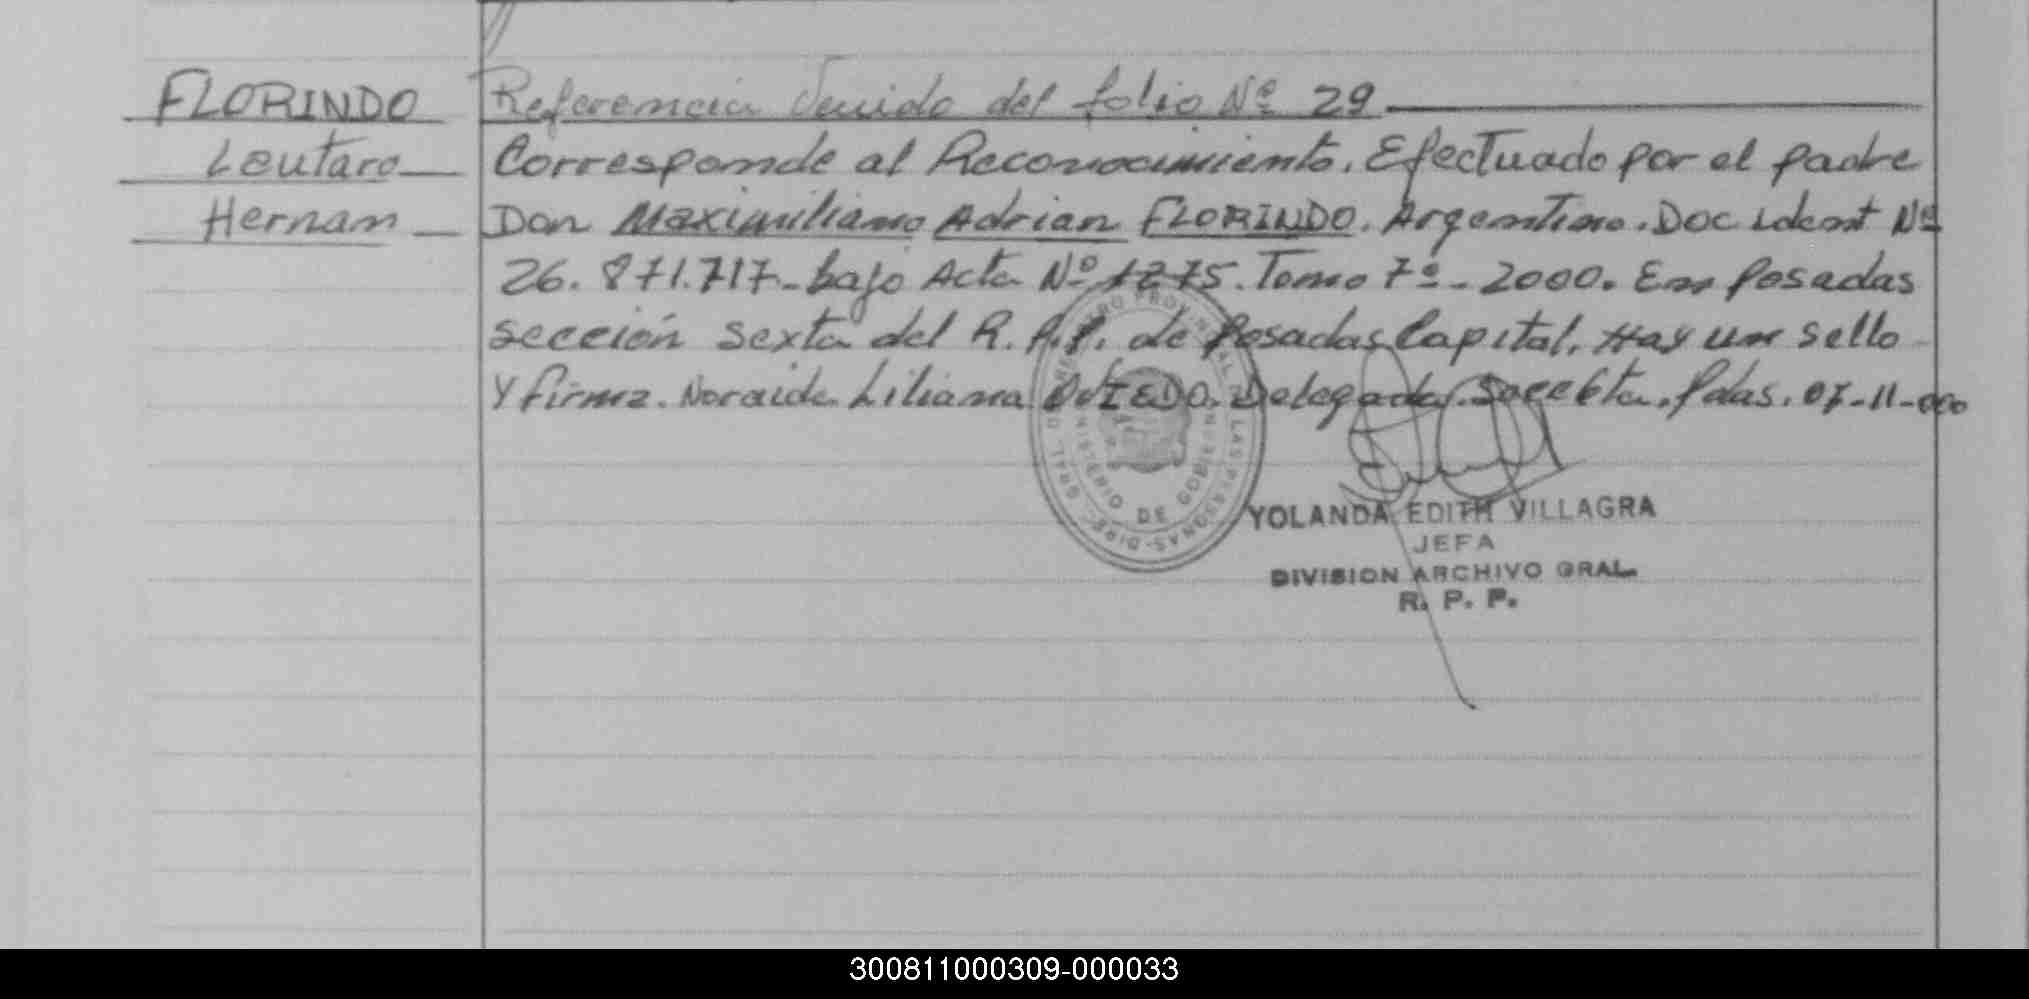 FLORINDO
Lautaro
Hernan
Referencia venido del folio Nº 29
Corresponde al Reconocimiento. Efectuado por el padre
Don Maximiliano Adrian FLORINDO. Argentino. Doc ident Nº
26.871.717- bajo Acta Nº 1275. Tomo 7º - 2000. En Posadas
sección sexta del R.P.P. de Posadas Capital. Hay un sello
y firma. Noraide Liliana OVIEDO. Delegada. Pdas. 07-11-000
REGISTRO PROVINCIAL DE LAS PERSONAS-DIREC. GRAL. MINISTERIO DE GOBIERNO
YOLANDA EDITH VILLAGRA
JEFA
DIVISION ARCHIVO GRAL.
R. P. P.
300811000309-000033